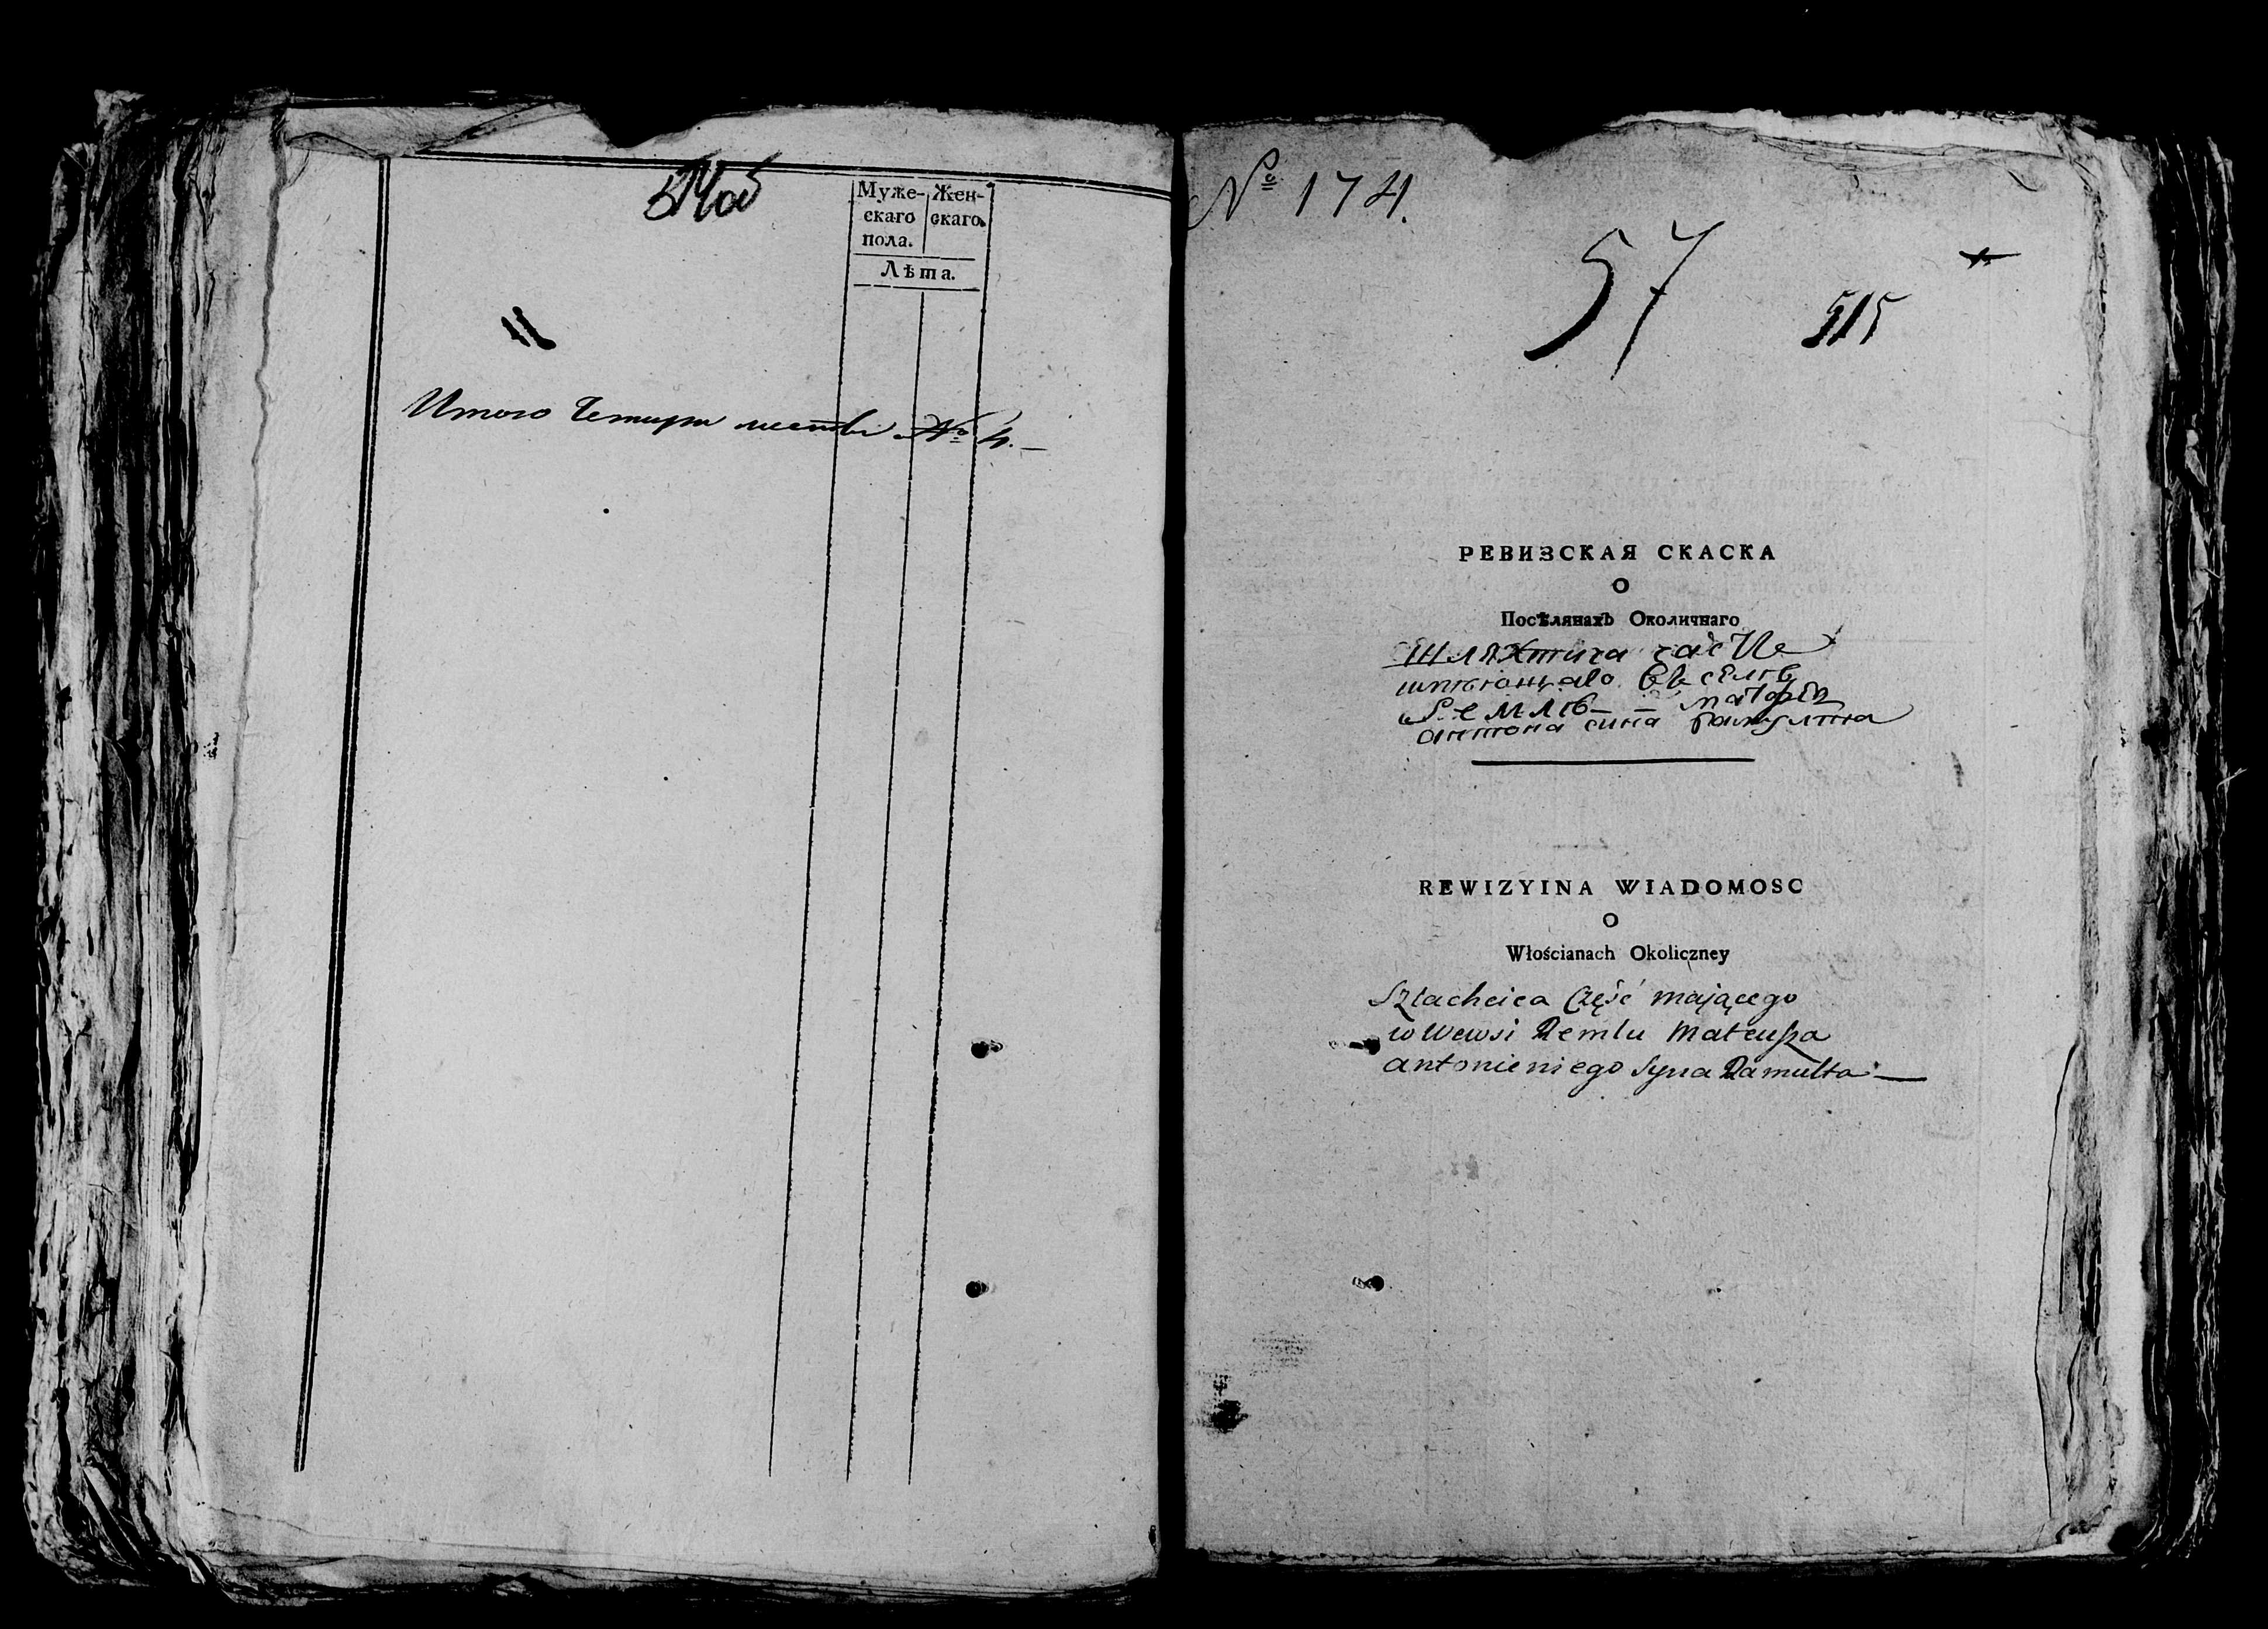 Муже- Жен-
скаго скаго
пола.
Лѣта.
Итого Четыри листы № 4. —
№ 174.
57
515
РЕВИЗСКАЯ СКАСКА
О
Посѣлянахъ Околичнаго
Шляхтича часте
имѣющаго въ селѣ
Ремлѣ — матфея
антона сина рамулта
REWIZYINA WIADOMOSC
O
Włościanach Okoliczney
Szlachcica Część mającego
w wewsi Remlu Mateusza
antonieniego Syna Ramulta —